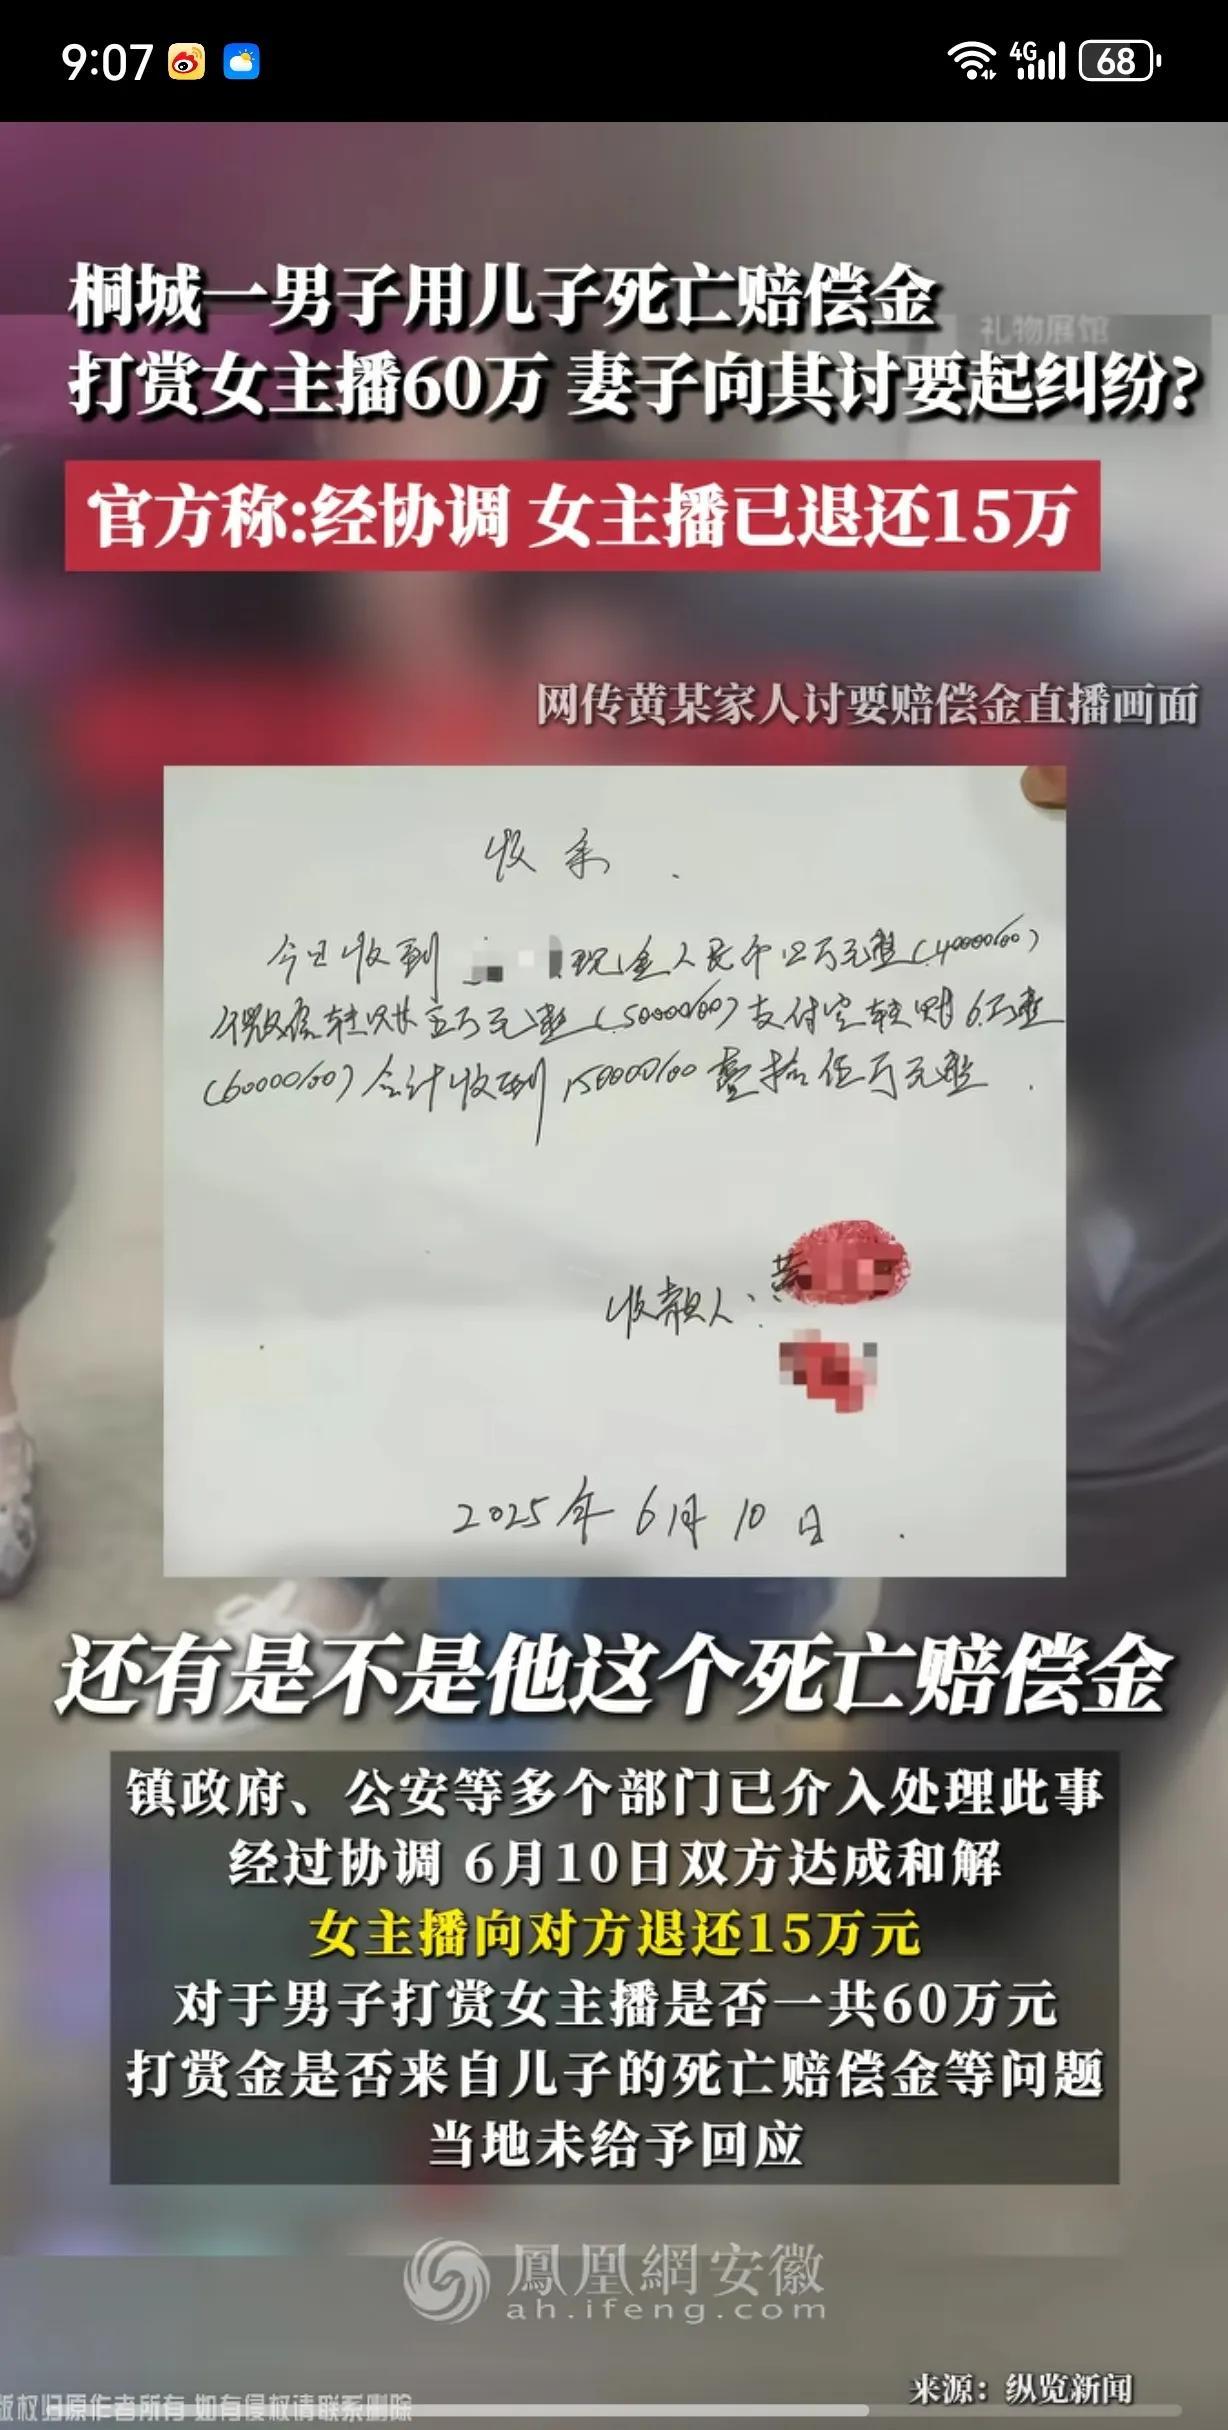 9:07
4G 68
礼物展馆
桐城一男子用儿子死亡赔偿金
打赏女主播60万 妻子向其讨要起纠纷?
官方称:经协调 女主播已退还15万
网传黄某家人讨要赔偿金直播画面
收条.
今日收到 现金人民币四万元整(40000/00)
微信转账五万元整(50000/00)支付宝转账6万整
(60000/00)合计收到150000/00壹拾伍万元整.
收款人: 黄
2025年6月10日.
还有是不是他这个死亡赔偿金
镇政府、公安等多个部门已介入处理此事
经过协调 6月10日双方达成和解
女主播向对方退还15万元
对于男子打赏女主播是否一共60万元
打赏金是否来自儿子的死亡赔偿金等问题
当地未给予回应
鳳凰網安徽
ah.ifeng.com
来源：纵览新闻
版权归原作者所有 如有侵权请联系删除